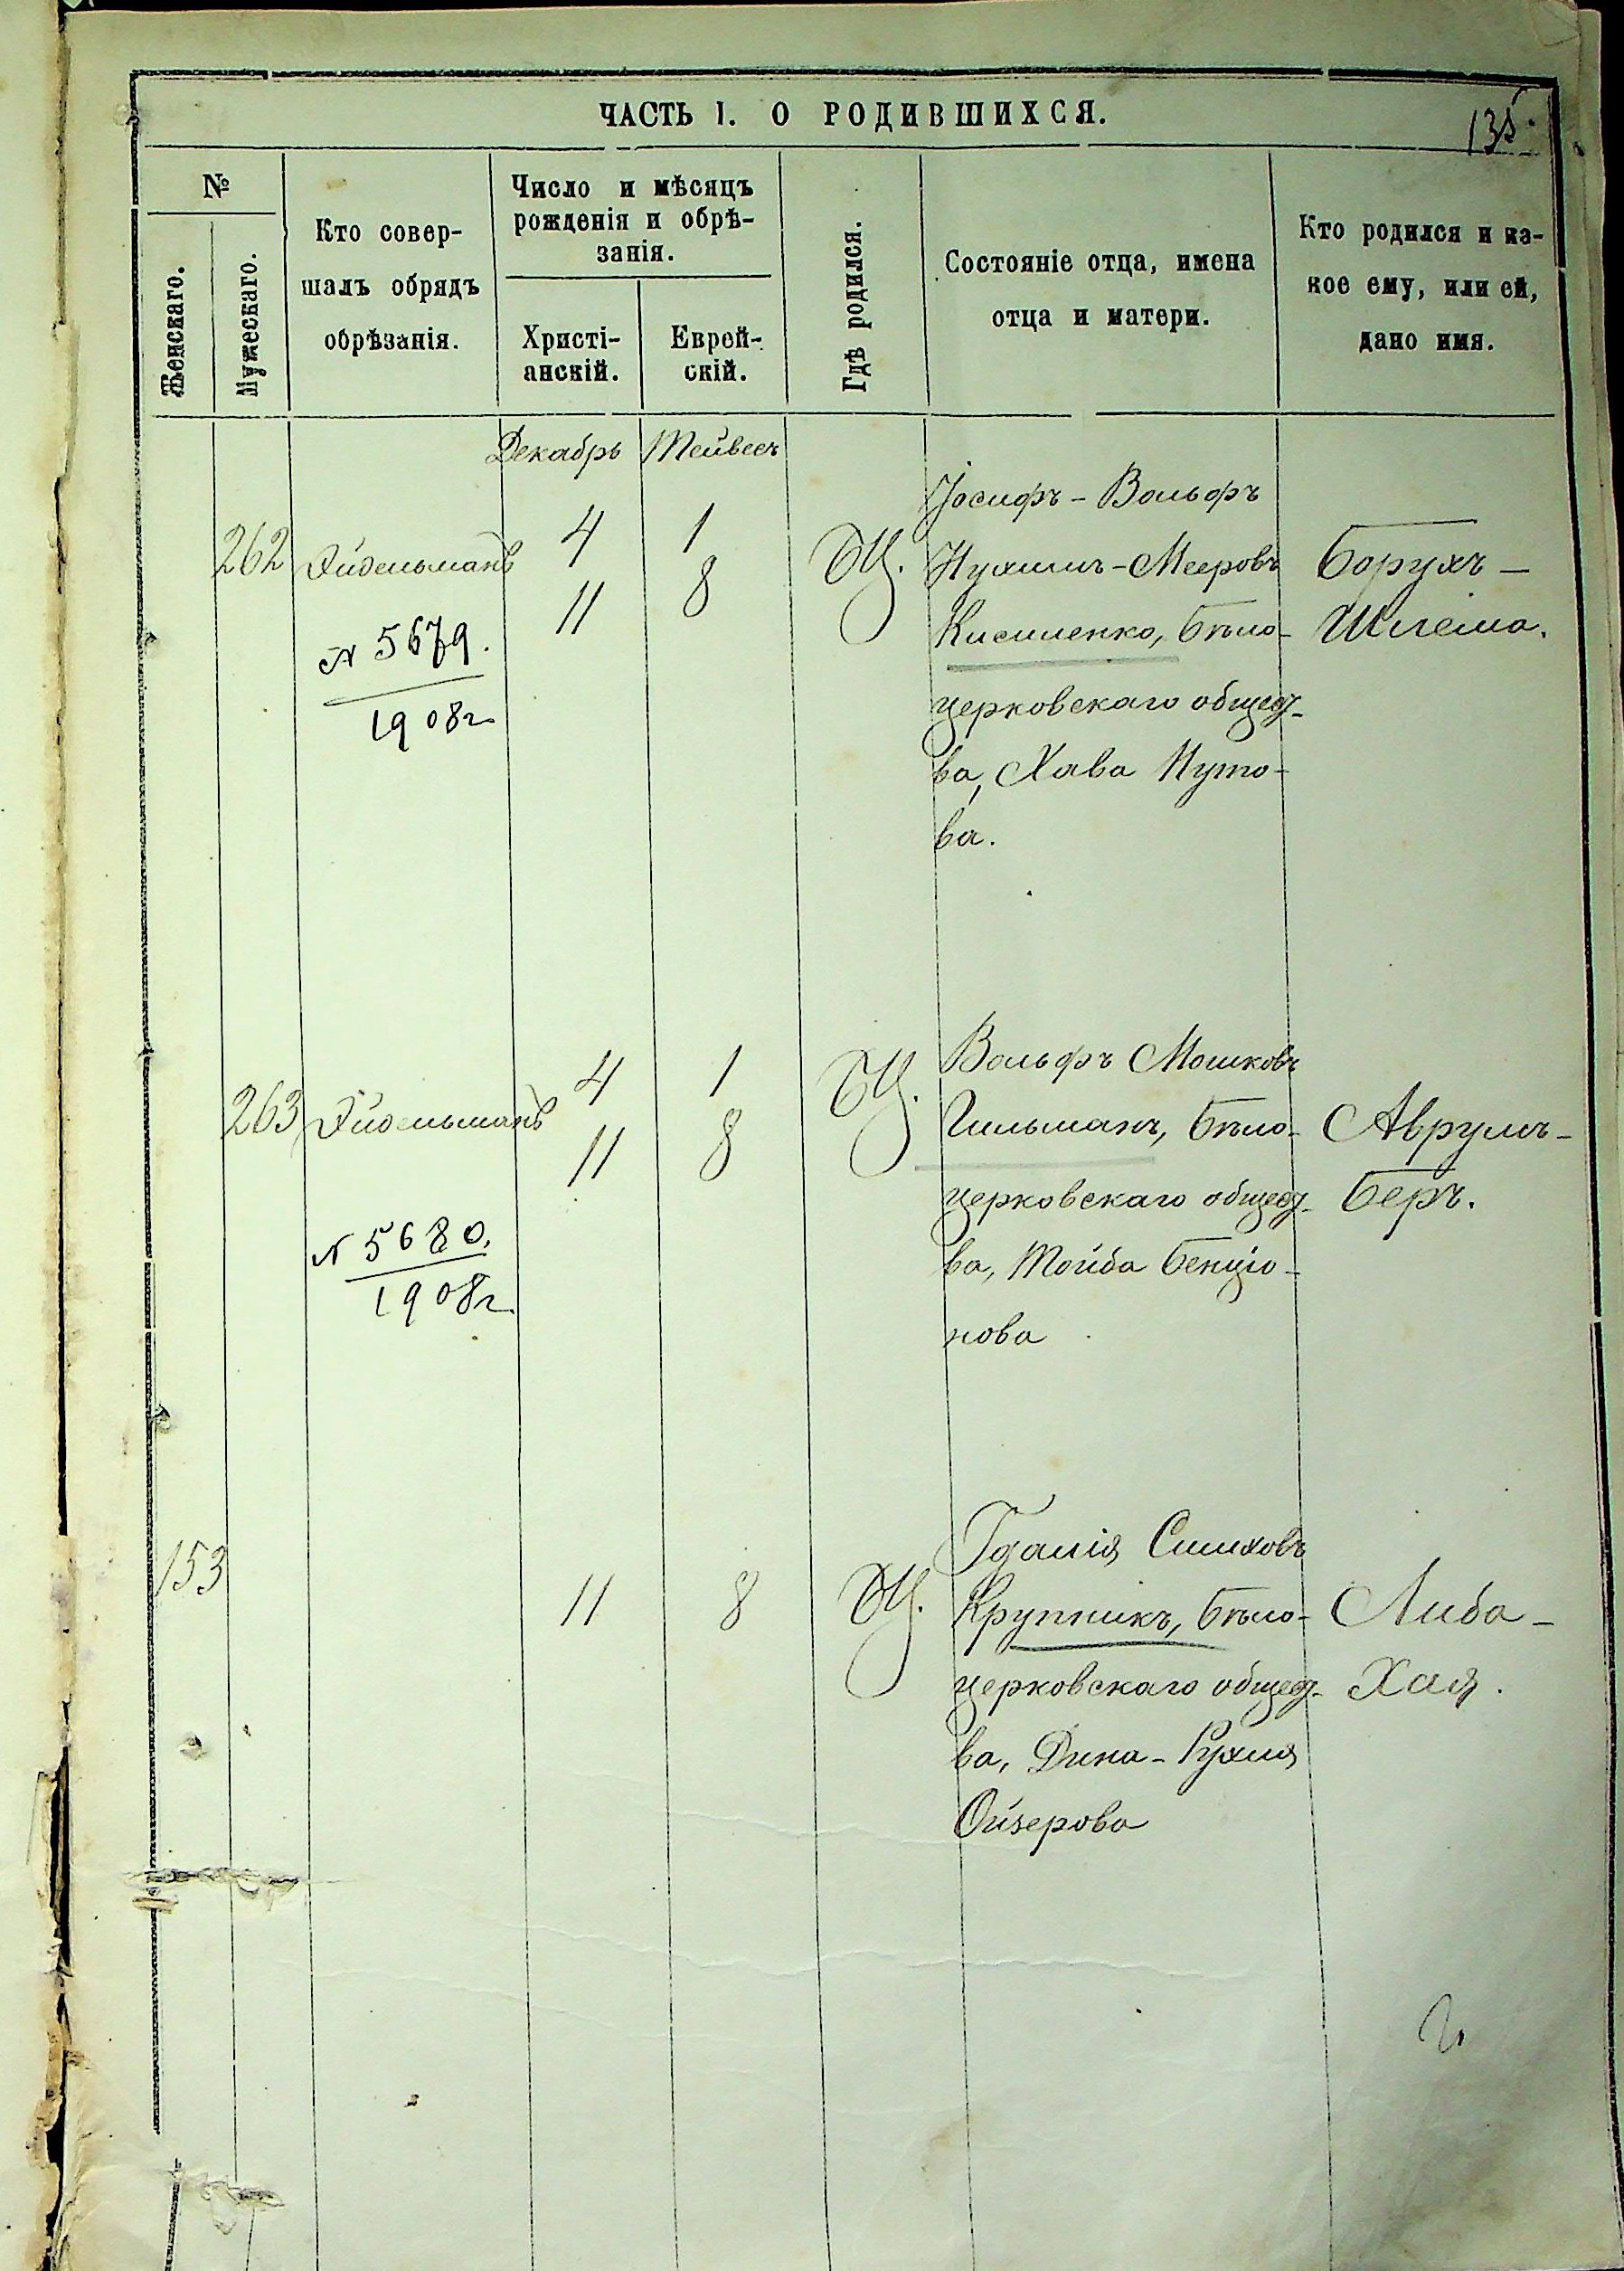 ЧАСТЬ I. О РОДИВШИХСЯ.
135
№
Женскаго.
Мужескаго.
Кто совер-
шалъ обрядъ
обрѣзанія.
Число и мѣсяцъ
рожденія и обрѣ-
занія.
Христі-
анскій.
Еврей-
скій.
Гдѣ родился.
Состояніе отца, имена
отца и матери.
Кто родился и ка-
кое ему, или ей,
дано имя.
Декабрь Тейвесъ
262 Эйдельманъ
4 1
11 8
БЦ.
Іосифъ-Вольфъ
Нухимъ-Мееровъ
Кисиленко, Бѣло-
церковскаго общест-
ва, Хава Нуто-
ва.
Борухъ-
Шлёма.
№ 5679.
1908г.
263 Эйдельманъ
4 1
11 8
БЦ.
Вольфъ Мошковъ
Гильманъ, Бѣло-
церковскаго общест-
ва, Тойба Бенціо-
нова
Аврумъ-
Беръ.
№ 5680.
1908г.
153
11 8
БЦ.
Гдалія Симховъ
Крупникъ, Бѣло-
церковскаго общест-
ва, Дина-Рухля
Ойзерова
Либа-
Хая.